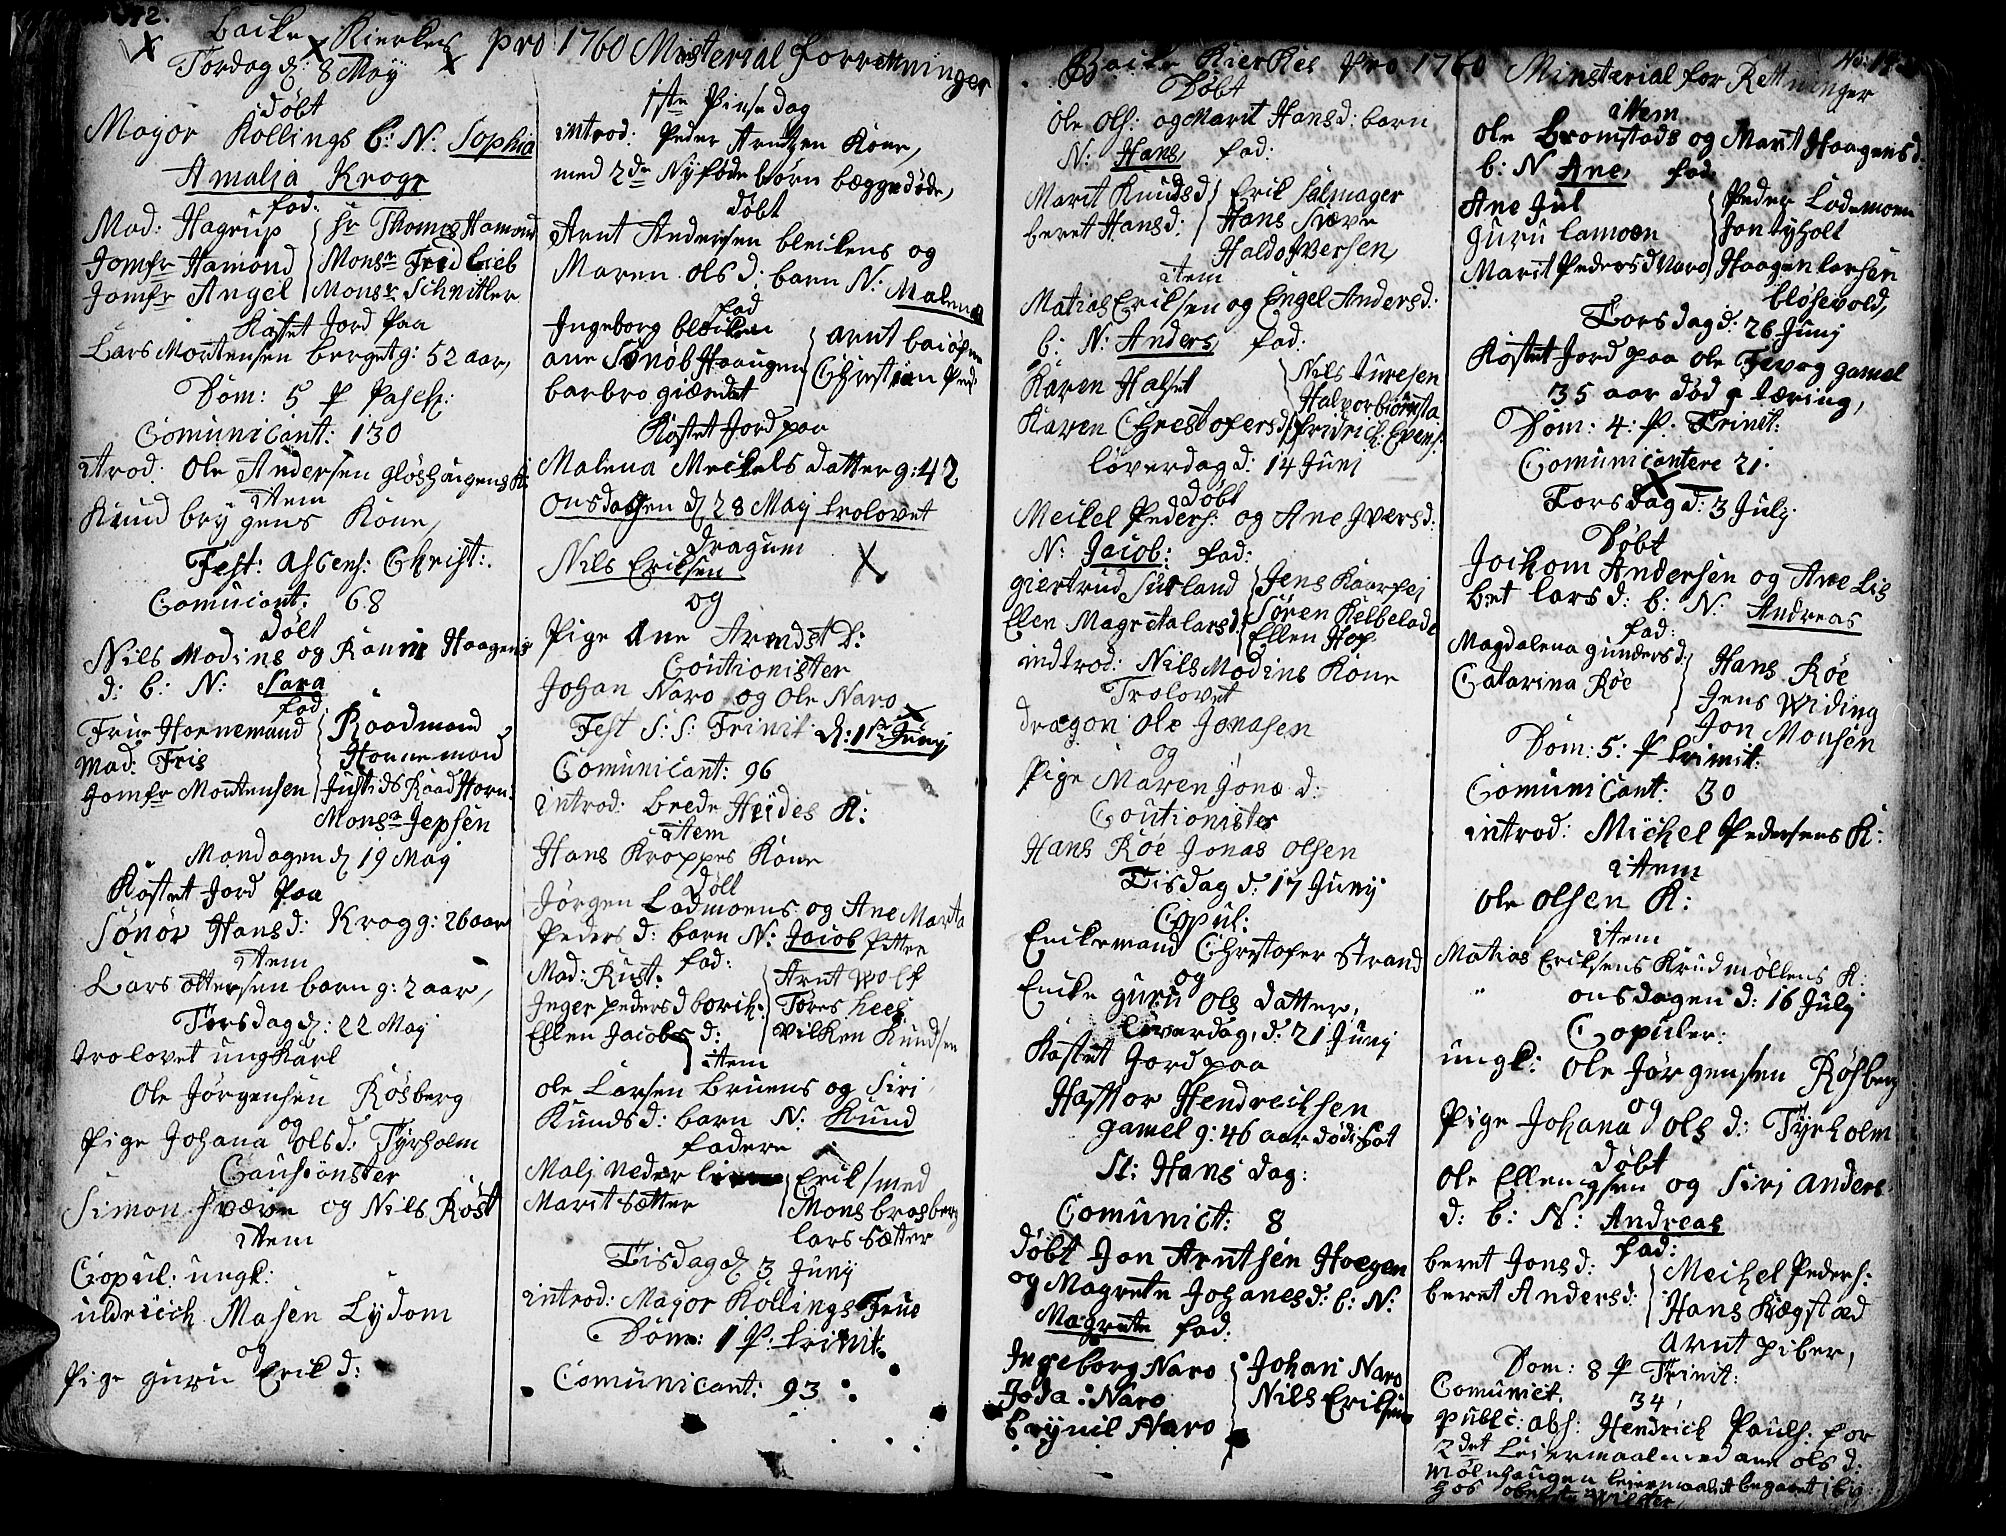 Backe Kierkes pro 1760 Misterial forretninger
Torsdag d: 8 May
døbt
Mayor Kollings b: N: Sophia
Amalia Krogr
fad:
Mad: Hagrup hr Thomas Hamond
Jomfr Hamond Monsr Fred Lieb
Jomfr Angel Monsr Schnitler
Kastet Jord Paa
Lars Mortensen berget g: 52 aar,
Dom: 5 p Pasch:
Comunicant: 130
introd: Ole Andersen Gløshaugens K:
Item
Knud brygens Kone,
Fest: Ascens: Christ:
Comucant: 68
døbt
Nils Modins og Karin Haagens
d: b: N: Sara
fad:
Frue Hornemand Raadmand
Mad: Fris Hornemand
Jomfr Mortensen Justids Raad Horn:
Monsr Jepsen
Mandagen d 19 May
Kastet Jord Paa
Sønør Hans d: Krog g: 26 aar
Item
Lars Ottersen barn g: 2 aar,
Torsdag d: 22 May
trolovet ungkarl
Ole Jørgensen Røsberg
og
Pige Johana Ols d: Tyrholm
Cautionister
Simon Svæve og Nils Røst
Item
Copul: ungk:
uldrich Masen Lydom
og
Pige guru Erik d:
1ste Pinse dag
introd: Peder Arntzen Kone,
med 2de Nyføde børn begge døde,
døbt
Arnt Andersen bleckens og
Maren ols d: barn N: Malena
fad
Ingeborg blecken Arnt
ane Sønøb Haugen Christian Ped:
barbro giærdet
Kastet Jord paa
Malena Meckels datter g: 42
onsdagen d 28 May trolovet
dragun
Nils Eriksen
og
Pige Ane Arndst D:
Coutionister
Johan Naro og Ole Naro
Fest S: S: Trinit: d: 1ste Junij
Comunicant: 96
introd: brede Heides K:
Item
Hans Kroppes Kone
døbt
Jørgen Lodmoens og Ane Marta
Peders d: barn N: Jacob Pitter
fad:
Mad: Rust: Arnt Wolf
Inger peders d borch: Tøres heeg
Ellen Jacobs d: Vilken Knudsen
Item
ole Larsen Bruens og Siri
Knuds d: barn N: Knud
fadere
Malj Neder Erik smed
Marit Sætter Mons brosberg
lars Sætter
Tisdag d 3 Junij
introd: Mayor Kollings Frue
Dom: 1 P: trinit:
Comunicant: 93
Backe Kierkes Pro 1760 Ministerial for Rettninger
Døbt
Ole Ols: og Marit Hans d: barn
N: Hans, fad:
Marit Knuds d Erik Salmager
beret Hans d: Hans Svæve
Haldo Iversen
Item
Matias Eriksen og Engel Anders d:
b: N: Anders, fad:
Karen Halset Nils Iuresen
Halvor
Karen Christofers d: fridrich: Evens:
løverdag d: 14 Junj
døbt
Meckel Peders: og Ane Ivers d:
N: Jacob: fad:
giertrud Surland Jens
Ellen Magreta lars d: Søren Kelbelade
Ellen Hof
indtrod: Nils Modins Kone
Trolovet
dragon Ole Jonasen
og
Pige Maren Jona d:
Coutionister
Hans Røe Jonas Olsen
Tisdag d: 17 Junij
Copul:
Enckemand Christofer Strand
og
Encke guru Ols datter,
Løverdag, d: 21 Junij
Kastet Jord paa
Hastor Hendrichsen
gamel g: 46 aar
St: Hans dag:
Comunict: 8
døbt Jon Arntsen Hoegen
og Magrete Johanes d: b: N:
Magrete fad:
Ingeborg Naro Johan Naro
Joda: Naro Nils Eriksen
Brynil Naro
Item
Ole Bromstads og Marit Haagens d:
b: N Ane, fad:
Ane Jul Peder Lodemoen
guru lamoen Jon tyholt
Marit Peders d Naro Haagen larsen
bløsevold,
Torsdag d: 26 Junij
Kastet Jord paa Ole gamel
35 aar død a tæring,
Dom: 4: P: Trinit:
Comunicantere 21.
Torsdag d: 3 July
Døbt
Jochom Andersen og Ane Lis
bet lars d: b: N: Andreas
fad:
Magdalena gunders d: Hans Røe
Catarina Røe Jens Widing
Jon Monsen
Dom: 5: P trinit:
Comunicant: 30
introd: Michel Pedersens K:
Item
Ole Olsen K:
Item
Matias Eriksens Krudmøllens K:
onsdagen d: 16 July
Copuler:
ungk: Ole Jørgensen Røsberg
og
Pige Johana Ols d: Tyrholm
døbt
Ole Ellengsen og Siri Anders
d: b: N: Andreas
fad:
beret Jons d: Meihel Peders:
beret Anders d: Hans Kægstad
Arnt piber,
Dom: 8 P Trinit:
Comunict. 34,
Public: abs: Hendrick Pauls: for
2det Leiermaal med ane ols d:
Mølnhaugen leiermaalet begaaet i by
hos